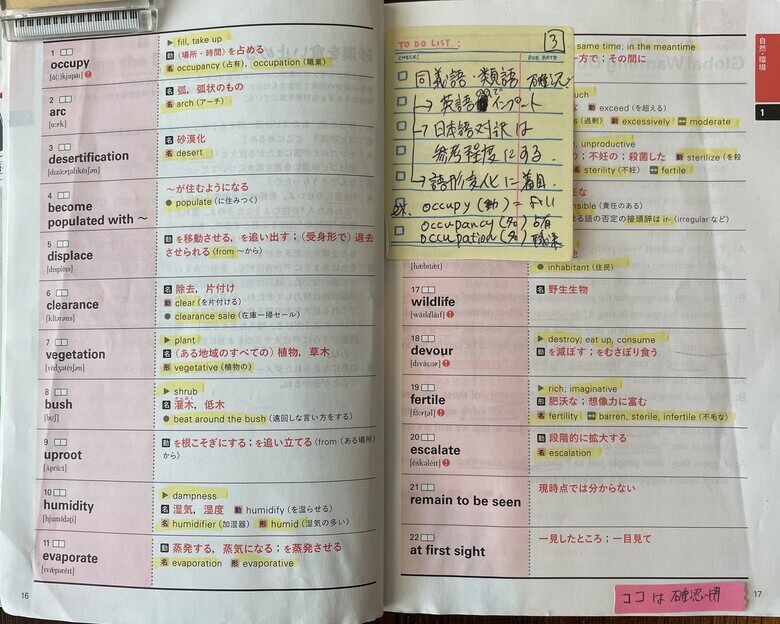 1
▶ fill, take up
occupy
動 (場所・時間) を占める
名 occupancy (占有), occupation (職業)
2
arc
[ɑːrk]
名 弧, 弧状のもの
名 arch (アーチ)
3
desertification
名 砂漠化
名 desert
4
become
populated with ～
～が住むようになる
● populate (に住みつく)
5
displace
[displéis]
動 を移動させる, を追い出す; (受身形で) 退去
させられる (from ～から)
6
clearance
[klíərəns]
名 除去, 片付け
動 clear (を片付ける)
● clearance sale (在庫一掃セール)
7
vegetation
[vèdʒətéiʃən]
▶ plant
名 (ある地域のすべての) 植物, 草木
形 vegetative (植物の)
8
bush
[búʃ]
▶ shrub
名 灌木, 低木
● beat around the bush (遠回しな言い方をする)
9
uproot
動 を根こそぎにする; を追い立てる (from (ある場所)
から)
10
humidity
▶ dampness
名 湿気, 湿度 動 humidify (を湿らせる)
名 humidifier (加湿器) 形 humid (湿気の多い)
11
evaporate
[ivǽpərèit]
動 蒸発する, 蒸気になる; を蒸発させる
名 evaporation 形 evaporative
16
TO DO LIST:
3
DUE DATE
同義語・類語 確認
→英語でインプット
→日本語対訳は
参考程度にする.
→語形変化に着目.
occupy (動) =
occupancy (名) 占有
occupation (名) 職業
same time; in the meantime
一方で; その間に
動 exceed (を超える)
副 excessively ⇔ moderate
unproductive
不妊の; 殺菌した 動 sterilize (を殺
名 sterility (不妊) ⇔ fertile
責任のある)
る語の否定の接頭辞は ir- (irregular など)
[hǽbitæt]
● inhabitant (住民)
17
wildlife
[wáildlàif]
名 野生生物
18
devour
[diváuər]
▶ destroy; eat up, consume
動 を滅ぼす; をむさぼり食う
19
fertile
▶ rich; imaginative
形 肥沃な; 想像力に富む
名 fertility ⇔ barren, sterile, infertile (不毛な)
20
escalate
[éskəlèit]
動 段階的に拡大する
名 escalation
21
remain to be seen
現時点では分からない
22
at first sight
一見したところ; 一目見て
自然・環境
1
ココは
17